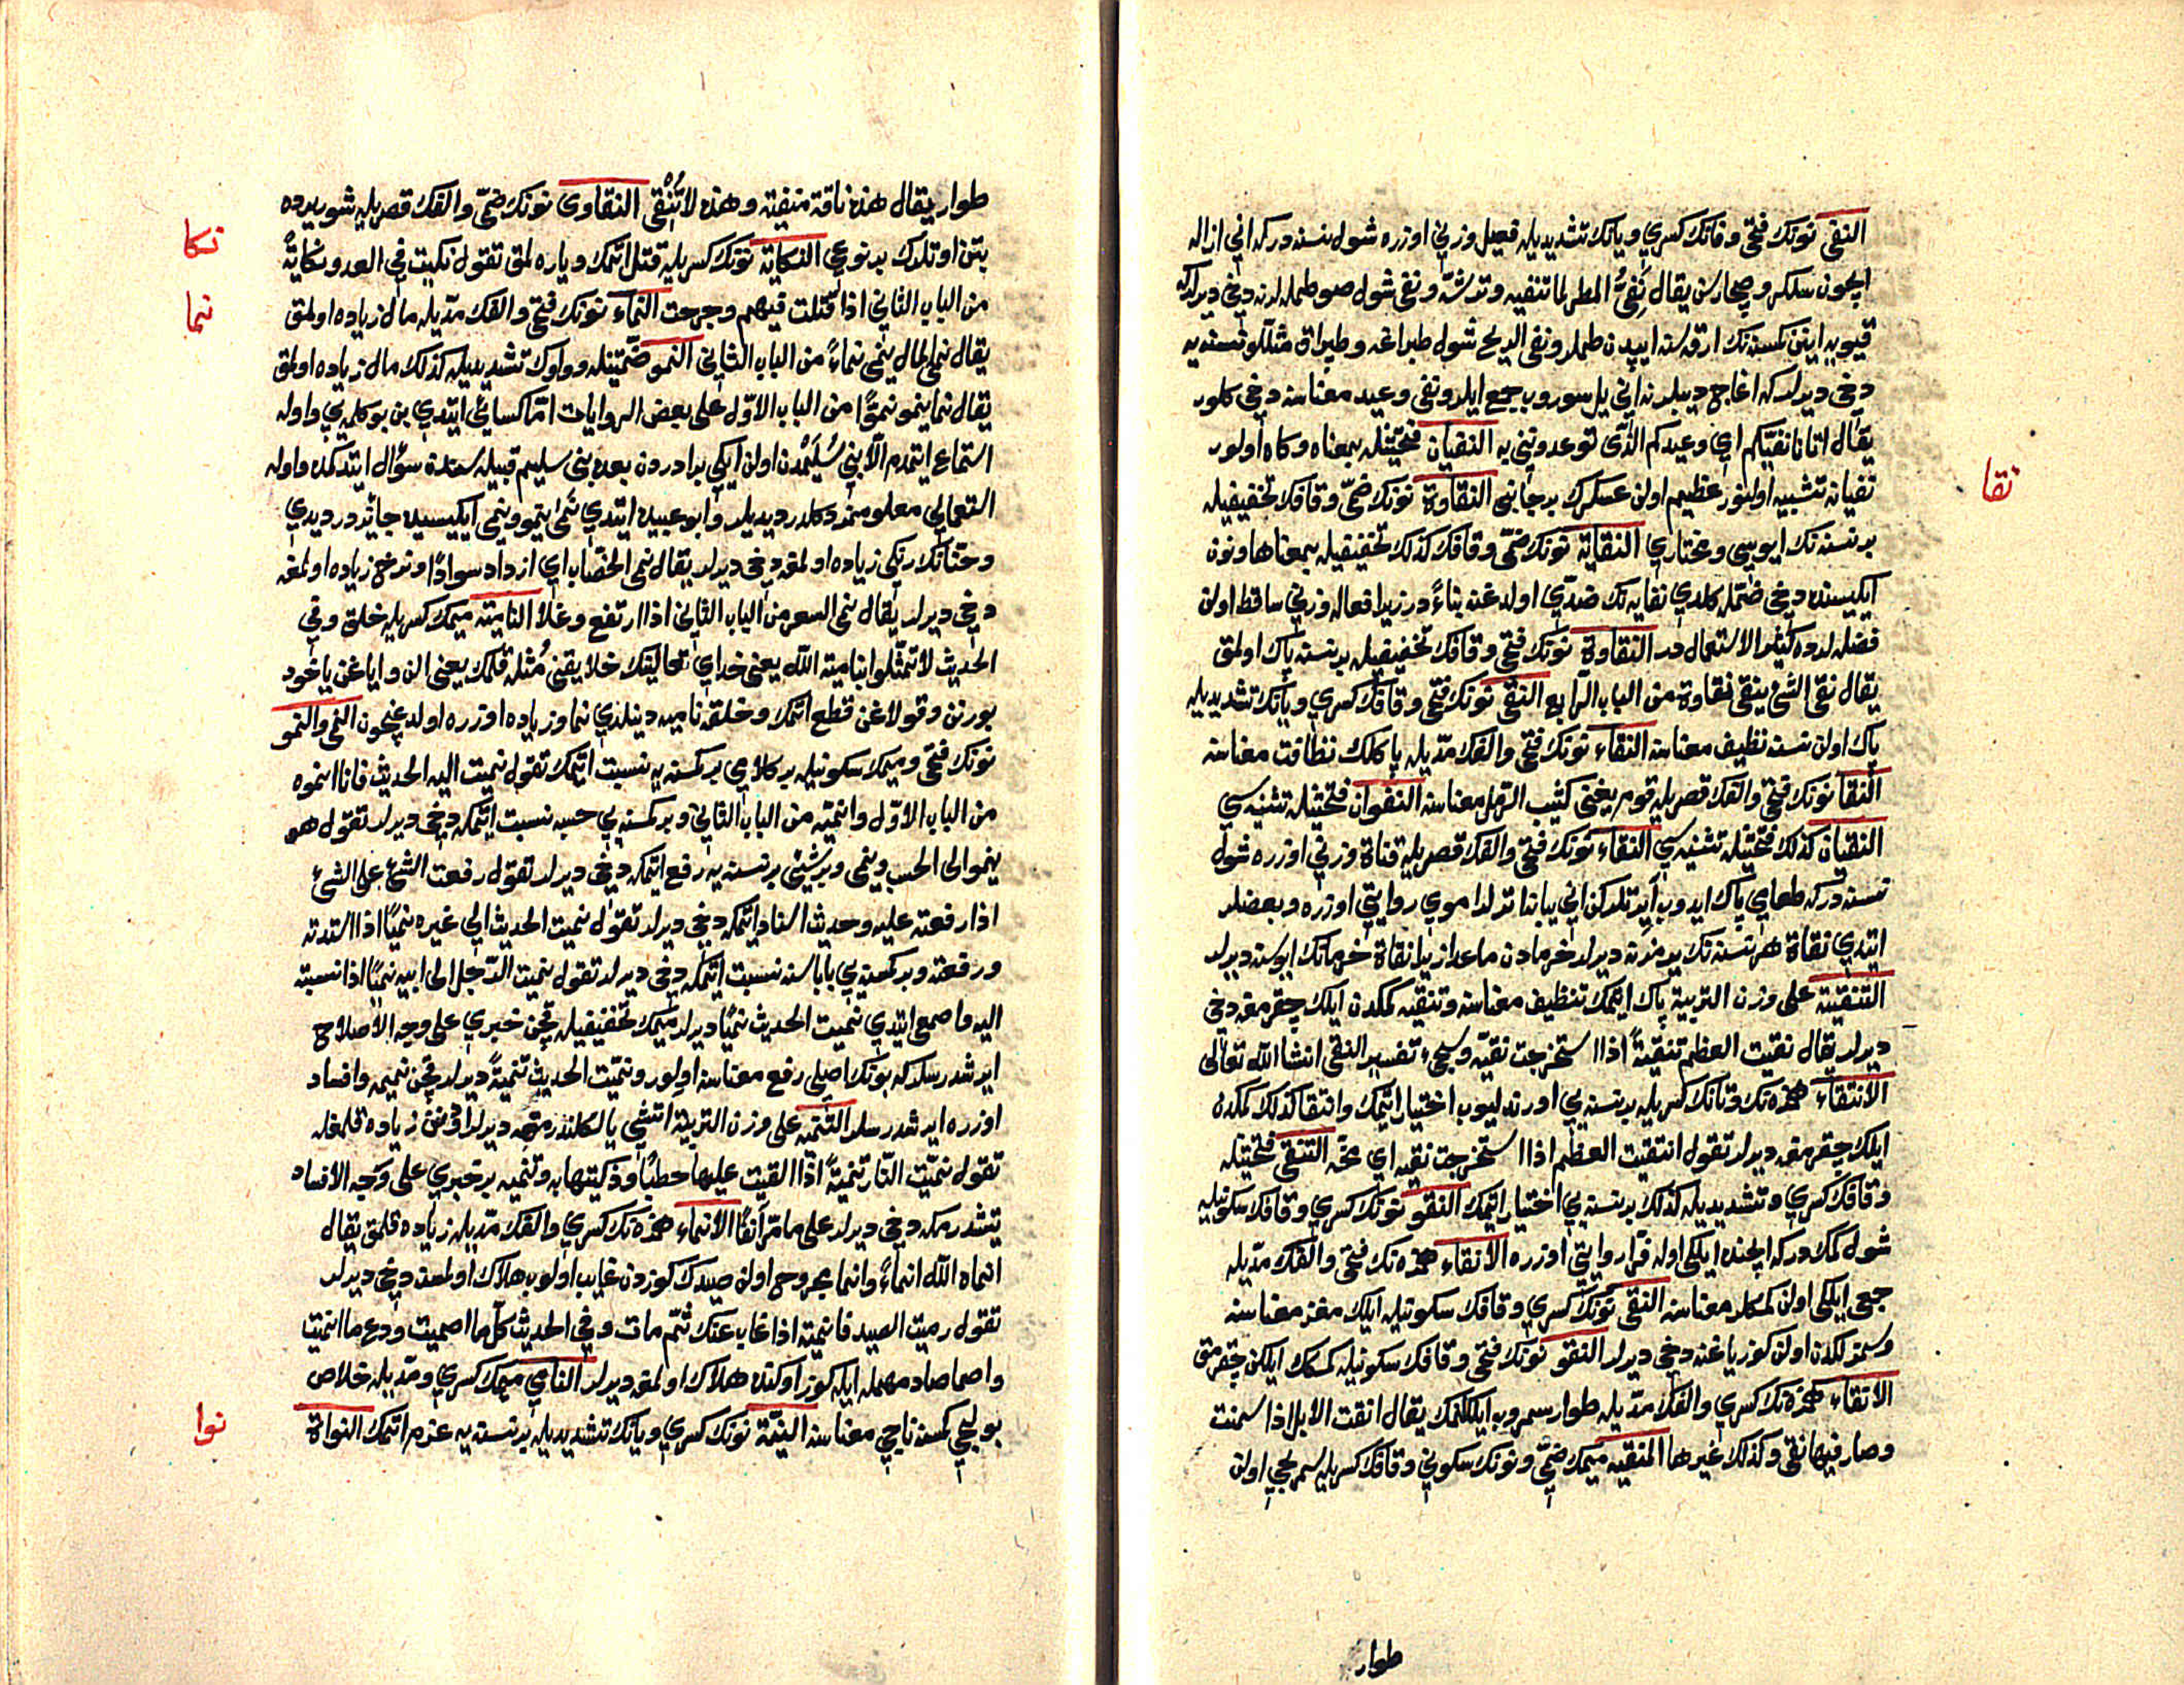 النفي نونك فتحي وفانك كسري ويانك تشديديله فعيل وزني اوزره شول نسنه دركه اني ازاله
ايچون سلكر وصچارسن يقال نفي المطر لما تنفيه وترشه ونفي شول صو طملر لرنه دخي ديرلركه
قيويه اينن كمسنه نك ارقه سنه ايپدن طملر ونفي الريح شول طپراغه وطپراق مثللو نسنه يه
دخي ديرلركه اغاج ديبلرنه اني يل سوروب جمع ايلر ونفي وعيد معناسنه دخي كلور
يقال اتانا نفيكم اي وعيدكم الذي توعدونني به النفيان فتحتيله بمعناه وكاه اولور
نفيانه تشبيه اولنور عظيم اولن عسكرك بر جانبي النقاوة نونك ضمي وقافك تخفيفيله
بر نسنه نك ايوسي ومختاري النقاية نونك ضمي وقافك كذلك تخفيفيله بمعناها ونون
ايكيسنده دخي ضمله كلدي نفايه نك ضدي اولدغنه بناءً در زيرا فعاله وزني ساقط اولن
فضله لرده كثير الاستعمال در النقاوة نونك فتحي وقافك تخفيفيله بر نسنه پاك اولمق
يقال نقي الشئ ينقى نقاوة من الباب الرابع النقي نونك فتحي وقافك كسري ويانك تشديديله
پاك اولن نسنه نظيف معناسنه النقاء نونك فتحي والفك مديله پاكلك نظافت معناسنه
النقا نونك فتحي والفك قصريله قوم يغني كثيب الرمل معناسنه النقوان فتحتيله تثنيه سي
النقيان كذلك فتحتيله تثنيه سي النقاء نونك فتحي والفك قصريله قناة وزني اوزره شول
نسنه دركه طعامي پاك ايدوب آيرتلركن اني يبانا اترلر اموي روايتي اوزره وبعضلر
ايتدي نقاة هر نسنه نك يرمزنه ديرلر خرمادن ماعدا زيرا نقاة خرمانك ايوسنه ديرلر
التنقية على وزن التربية پاك ايتمك تنظيف معناسنه وتنقيه كمكدن ايلك چقرمغه دخي
ديرلر يقال نقيت العظم تنقيةً اذا استخرجت نقيه وسيجئ تفسير النقي انشا الله تعالى
الانتقاء همزه نك وتانك كسريله بر نسنه يي اورتدليوب اختيار ايتمك وانتقا كذلك كمكدن
ايلك چقرمغه ديرلر تقول انتقيت العظم اذا استخرجت نقيه اي مخه التنقي فتحتيله
وقافك كسري وتشديديله كذلك بر نسنه يي اختيار ايتمك النقو نونك كسري وقافك سكونيله
شول كمك دركه ايچنده ايلكي اوله فرّا روايتي اوزره الانقاء همزه نك فتحي والفك مديله
جمعي ايلكي اولن كمكلر معناسنه النقي نونك كسري وقافك سكونيله ايلك مغز معناسنه
وسمزلكدن اولن كوز ياغنه دخي ديرلر النقو نونك فتحي وقافك سكونيله كمكك ايلكن چقرمق
الانقاء همزه نك كسري والفك مديله طوار سمروب ايلكلنمك يقال انقت الابل اذا سمنت
وصار فيها نقي وكذلك غيرها المنقيه ميمك ضمي ونونك سكوني وقافك كسريله سمريجي اولن
طوار
نقا
طوار يقال هذه ناقة منقية وهذه لا تُنقي النقاوى نونك ضمي والفك قصريله شور يرده
بتن اوتلرك بر نوعي النكاية نونك كسريله قتل ايتمك وياره لمق تقول نكيت في العدو نكايةً
من الباب الثاني اذا قتلت فيهم وجرحت النماء نونك فتحي والفك مديله مال زياده اولمق
يقال نمى المال ينمي نماءً من الباب الثاني النمو ضمتيله وواوك تشديديله كذلك مال زياده اولمق
يقال نما ينمو نموًّا من الباب الاول على بعض الروايات امّا كسائي ايتدي بن بو كلمه يي واوله
استماع ايتمدم الّا بني سُلَيمدن اولن ايكي برادردن بعده بني سليم قبيله سندن سؤال ايتدكمده واوله
استعمالي معلوممز دكلدر ديديلر وابو عبيده ايتدي نمى ينمو وينمي ايكيسيده جائزدر ديدي
وحنّانك رنكي زياده اولمغه دخي ديرلر يقال نمى الخضاب اي ازداد سوادًا ونرخ زياده اولمغه
دخي ديرلر يقال نمى السعر من الباب الثاني اذا ارتفع وغلا النامية ميمك كسريله خلق وفي
الحديث لا تمثلوا بنامية الله يعني خداي تعالينك خلايقني مُثله قلمك يعني الن واياغن ياخود
بورنن وقولاغن قطع ايتمك وخلقه ناميه دينلدي نما وزياده اوزره اولدغيچون النمي والنمو
نونك فتحي وميمك سكونيله بر كلامي بر كمسنه يه نسبت ايتمك تقول نميت اليه الحديث فانا انموه
من الباب الاول وانميه من الباب الثاني وبر كمسنه يي حسبه نسبت ايتمكه دخي ديرلر تقول هو
ينمو الى الحسب وينمي وبر شيئي بر نسنه يه رفع ايتمكه دخي ديرلر تقول رفعت الشئ على الشئ
اذا رفعته عليه وحديث اسناد ايتمكه دخي ديرلر تقول نميت الحديث الى غيره نميًا اذا اسندته
ورفعته وبر كمسنه يي باباسنه نسبت ايتمكه دخي ديرلر تقول نميت الرجل الى ابيه نميًا اذا نسبته
اليه واصمعي ايتدي نميت الحديث نميًا ديرلر ميمك تخفيفيله قچن خبري على وجه الاصلاح
ايرشدرسلر كه بونك اصلي رفع معناسنه اولور ونميت الحديث تنميةً ديرلر قچن نميمه وافساد
اوزره ايرشدرسلر التنمية على وزن التربية آتشي يالكلندرمغه ديرلر اودنن زياده قلمغله
تقول نميت النار تنميةً اذا القيت عليها حطبًا وذكيتها به وتنميه بر خبري على وجه الافساد
يتشدرمكه دخي ديرلر على ما مرّ آنفًا الانماء همزه نك كسري والفك مديله زياده قلمق يقال
انماه الله انماءً وانما مجروح اولن صيدك كوزدن غايب اولوب هلاك اولمسنه دخي ديرلر
تقول رميت الصيد فانميته اذا غاب عنك ثم مات وفي الحديث كل ما اصميت ودع ما انميت
واصما صاد مهمله ايله كوز اوكنده هلاك اولمغه ديرلر النامي ميمك كسري ومديله خلاص
بولجي كمسنه ناجي معناسنه النيّة نونك كسري ويانك تشديديله بر نسنه يه عزم ايتمك النواة
نكا
نما
نوا